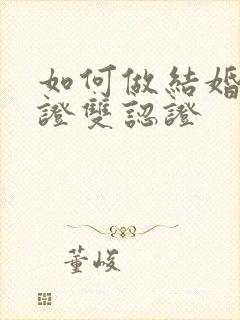 如何做結婚
證雙認證
董峻